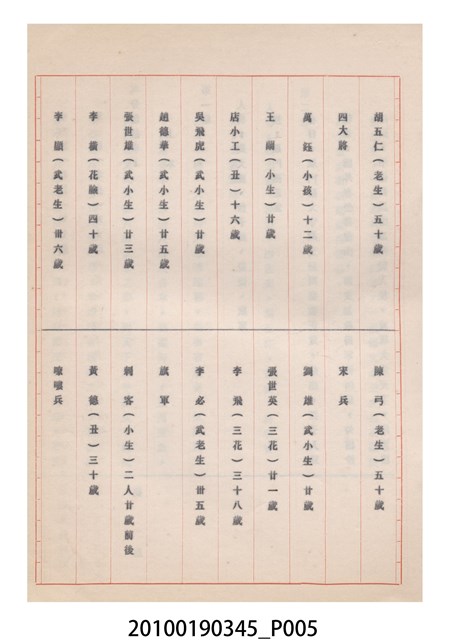 胡五仁(老生)五十歲
四大將
萬 鈺(小孩)十二歲
王 蘭(小生)廿歲
店小工(丑)十六歲
吳飛虎(武小生)廿歲
趙德華(武小生)廿五歲
張世雄(武小生)廿三歲
李 橫(花臉)四十歲
李 顯(武老生)卅六歲
陳 弓(老生)五十歲
宋 兵
劉 雄(武小生)廿歲
張世英(三花)廿一歲
李 飛(三花)三十八歲
李 必(武老生)卅五歲
旗 軍
刺 客(小生)二人廿歲前後
黃 德(丑)三十歲
嘍嘍兵
20100190345_P005